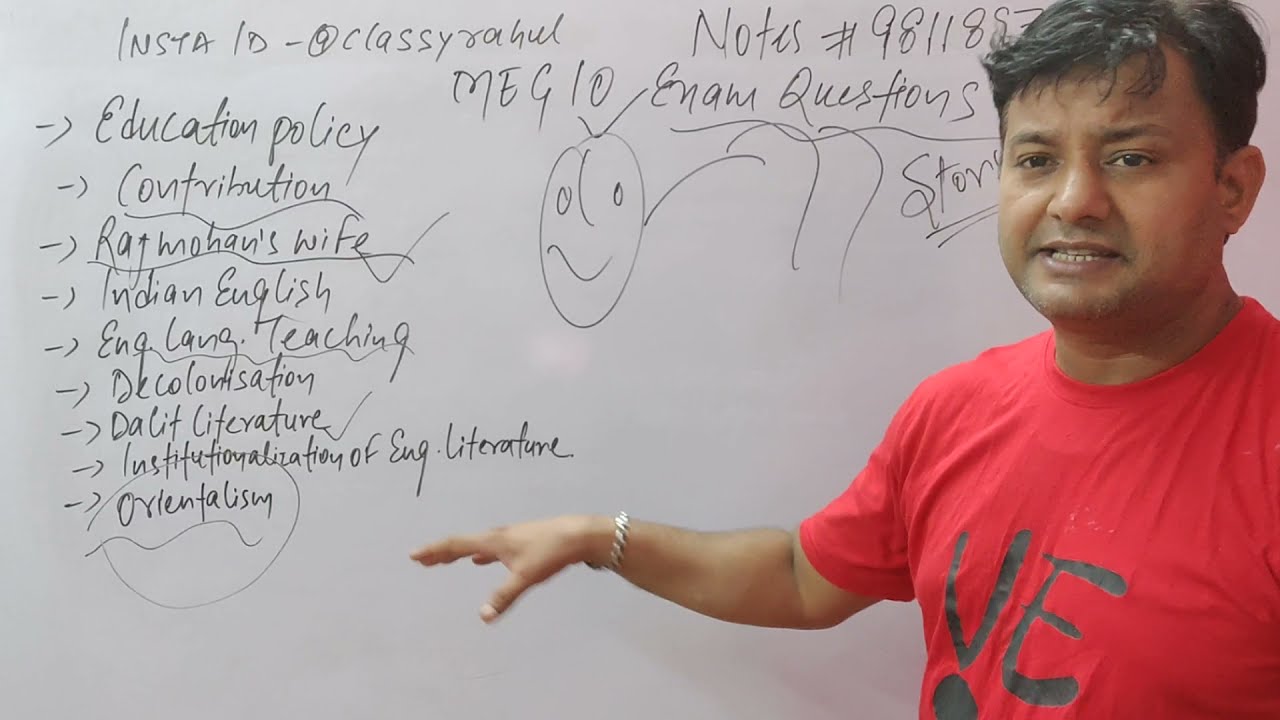 INSTA ID - @classyrahul
Notes # 981188
MEG 10 Exam Questions
-> Education policy
-> Contribution
-> Rajmohan's wife
-> Indian English
-> Eng. Lang. Teaching
-> Decolonisation
-> Dalit literature
-> Institutionalization of Eng. literature.
-> Orientalism
VE